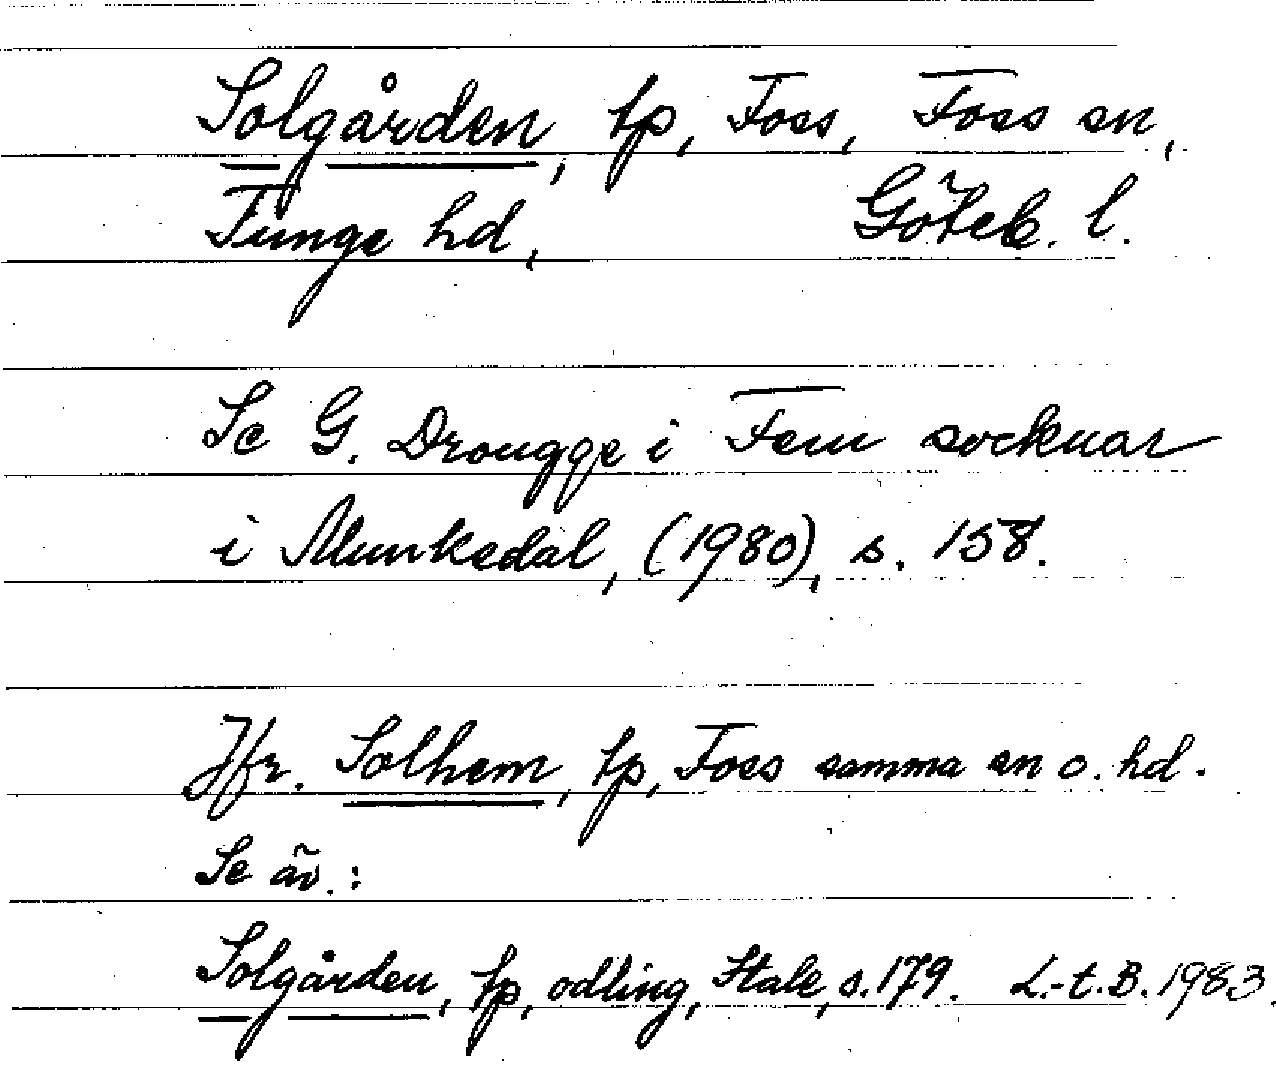 Solgården, tp, Foss, Foss sn,
Tunge hd, Göteb. l.
Se G. Drougge i Fem socknar
i Munkedal, (1980), s. 158.
Jfr. Solhem, tp, Foss samma sn o. hd.
Se äv.:
Solgården, tp, odling, Stale, s. 179. L.-t.B. 1983.